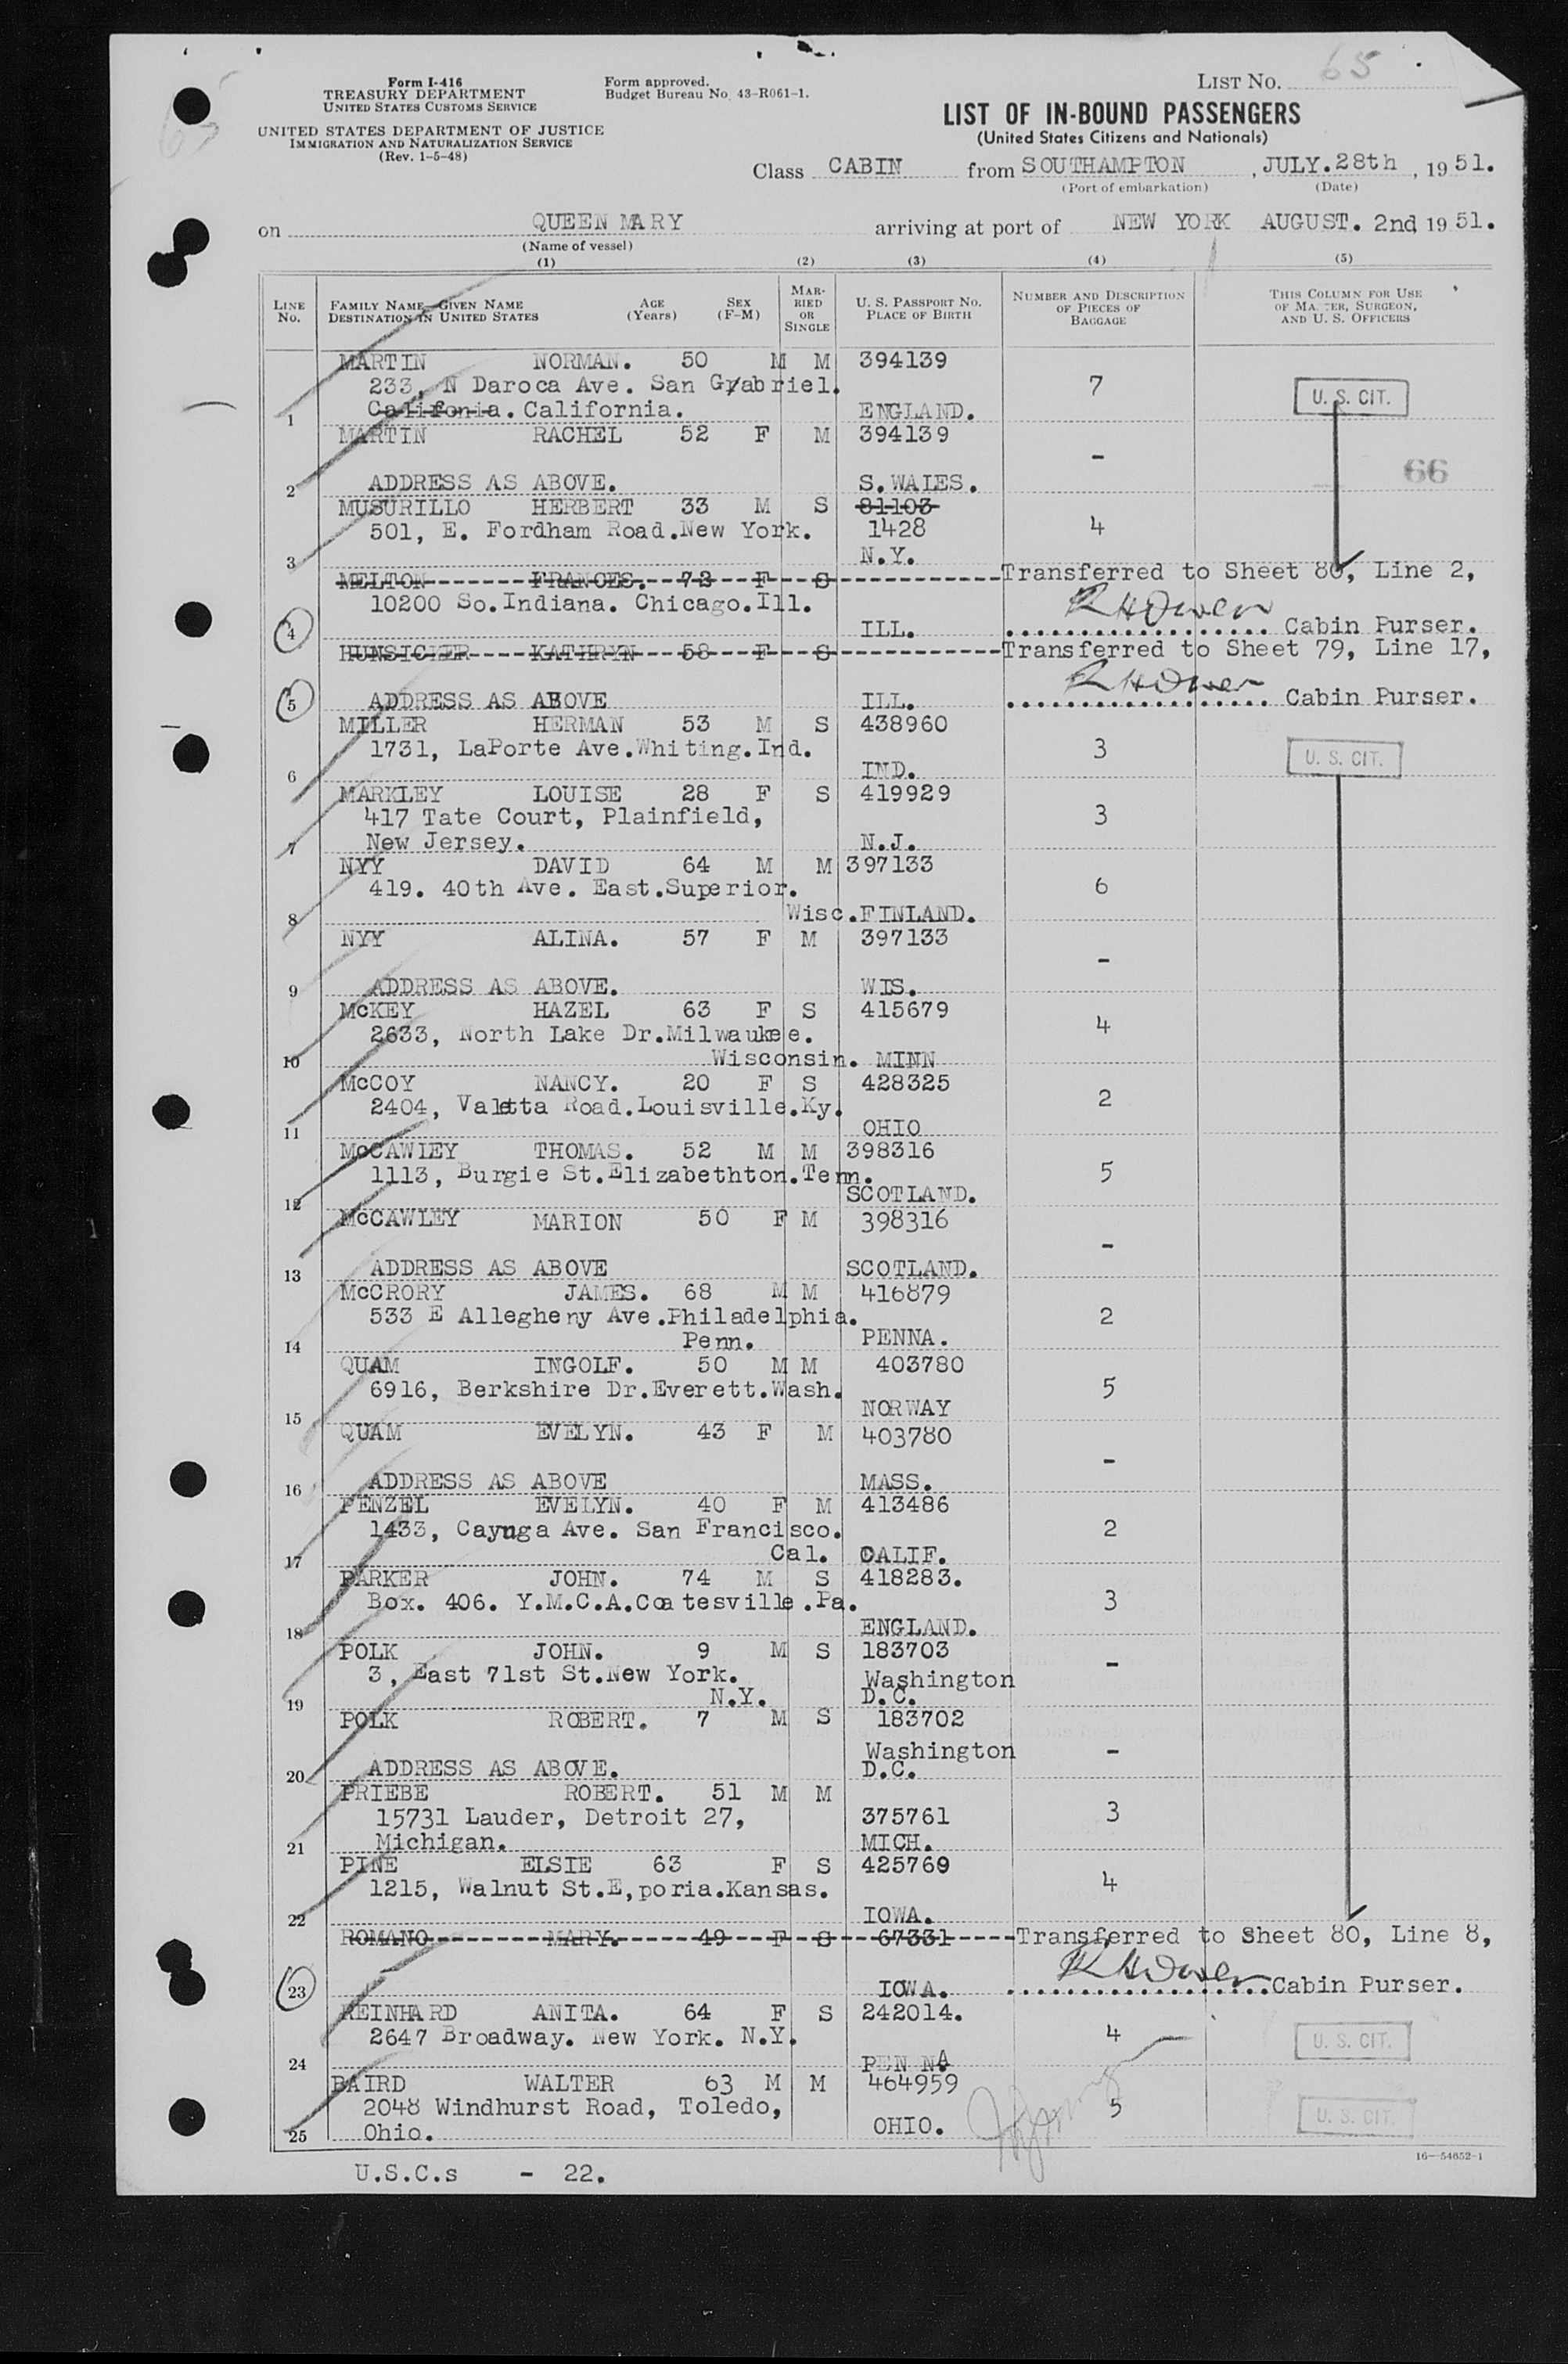 65
Form I-416
TREASURY DEPARTMENT
UNITED STATES CUSTOMS SERVICE
UNITED STATES DEPARTMENT OF JUSTICE
IMMIGRATION AND NATURALIZATION SERVICE
(Rev. 1-5-48)
Form approved.
Budget Bureau No. 43-R061-1.
LIST NO. 65
LIST OF IN-BOUND PASSENGERS
(United States Citizens and Nationals)
Class CABIN from SOUTHAMPTON, JULY.28th, 1951.
(Port of embarkation) (Date)
on QUEEN MARY arriving at port of NEW YORK AUGUST. 2nd 1951.
(Name of vessel)
(1) (2) (3) (4) (5)
LINE NO. FAMILY NAME—GIVEN NAME DESTINATION IN UNITED STATES AGE (Years) SEX (F-M) MARRIED OR SINGLE U. S. PASSPORT NO. PLACE OF BIRTH NUMBER AND DESCRIPTION OF PIECES OF BAGGAGE THIS COLUMN FOR USE OF MASTER, SURGEON, AND U. S. OFFICERS
MARTIN NORMAN. 50 M M 394139
233, N Daroca Ave. San Gabriel. 7 U. S. CIT.
1 Califonia. California. ENGLAND.
MARTIN RACHEL 52 F M 394139
- 66
2 ADDRESS AS ABOVE. S.WALES.
MUSURILLO HERBERT 33 M S 81103
501, E. Fordham Road.New York. 1428 4
3 N.Y.
MELTON FRANCES. 72 F S Transferred to Sheet 80, Line 2,
10200 So.Indiana. Chicago.Ill. R H Owen
4 ILL. Cabin Purser.
HUNSICKER KATHRYN 58 F S Transferred to Sheet 79, Line 17,
R H Owen
5 ADDRESS AS ABOVE ILL. Cabin Purser.
MILLER HERMAN 53 M S 438960
1731, LaPorte Ave.Whiting.Ind. 3 U. S. CIT.
6 IND.
MARKLEY LOUISE 28 F S 419929
417 Tate Court, Plainfield, 3
7 New Jersey. N.J.
NYY DAVID 64 M M 397133
419. 40th Ave. East.Superior. 6
8 Wisc.FINLAND.
NYY ALINA. 57 F M 397133
-
9 ADDRESS AS ABOVE. WIS.
McKEY HAZEL 63 F S 415679
2633, North Lake Dr.Milwaukee. 4
10 Wisconsin. MINN
McCOY NANCY. 20 F S 428325
2404, Valetta Road.Louisville.Ky. 2
11 OHIO
McCAWLEY THOMAS. 52 M M 398316
1113, Burgie St.Elizabethton.Tenn. 5
12 SCOTLAND.
McCAWLEY MARION 50 F M 398316
-
13 ADDRESS AS ABOVE SCOTLAND.
McCRORY JAMES. 68 M M 416879
533 E Allegheny Ave.Philadelphia. 2
14 Penn. PENNA.
QUAM INGOLF. 50 M M 403780
6916, Berkshire Dr.Everett.Wash. 5
15 NORWAY
QUAM EVELYN. 43 F M 403780
-
16 ADDRESS AS ABOVE MASS.
PENZEL EVELYN. 40 F M 413486
1433, Cayuga Ave. San Francisco. 2
17 Cal. CALIF.
PARKER JOHN. 74 M S 418283.
Box. 406. Y.M.C.A.Coatesville.Pa. 3
18 ENGLAND.
POLK JOHN. 9 M S 183703
3, East 71st St.New York. Washington -
19 N.Y. D.C.
POLK ROBERT. 7 M S 183702
Washington -
20 ADDRESS AS ABOVE. D.C.
PRIEBE ROBERT. 51 M M
15731 Lauder, Detroit 27, 375761 3
21 Michigan. MICH.
PINE ELSIE 63 F S 425769
1215, Walnut St.E,poria.Kansas. 4
22 IOWA.
ROMANO MARY. 49 F S 67331 Transferred to Sheet 80, Line 8,
R H Owen
23 IOWA. Cabin Purser.
REINHARD ANITA. 64 F S 242014.
2647 Broadway. New York. N.Y. 4 U. S. CIT.
24 PENNA
BAIRD WALTER 63 M M 464959
2048 Windhurst Road, Toledo, 5 U. S. CIT.
25 Ohio. OHIO.
16—54652-1
U.S.C.s - 22.